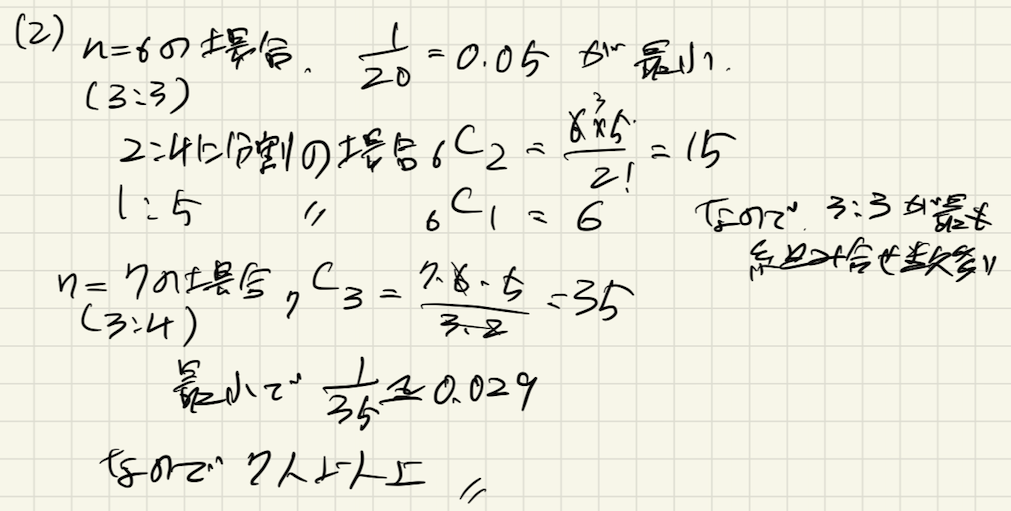 (2) n=6の場合. 1/20 = 0.05 が最小.
(3:3)
2:4に分割の場合 ₆C₂ = 6×5/2! = 15
3
1:5 〃 ₆C₁ = 6
なので 3:3が最も
組み合せ数多い
n=7の場合 ₇C₃ = 7·6·5/3·2 = 35
(3:4)
最小で 1/35 ≒ 0.029
なので 7人以上 〃